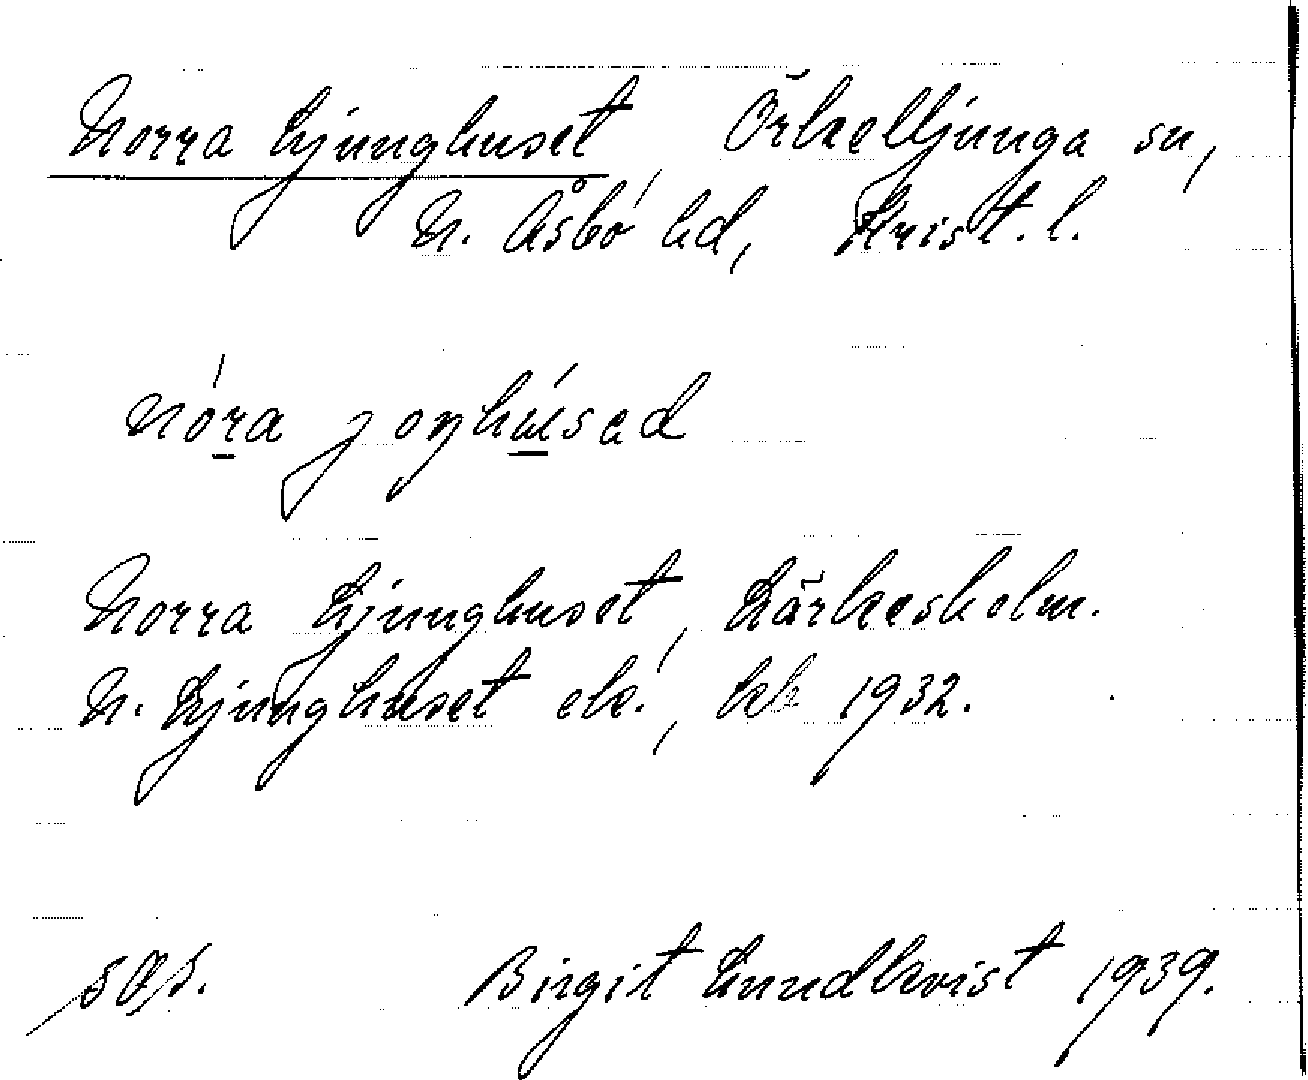 Norra Ljunghuset, Örkelljunga sn,
N. Åsbo hd, Krist. l.
nóra joŋhúsad
Norra Ljunghuset, Lärkesholm.
N. Ljunghuset ek., kb 1932.
Birgit Lundkvist 1939.